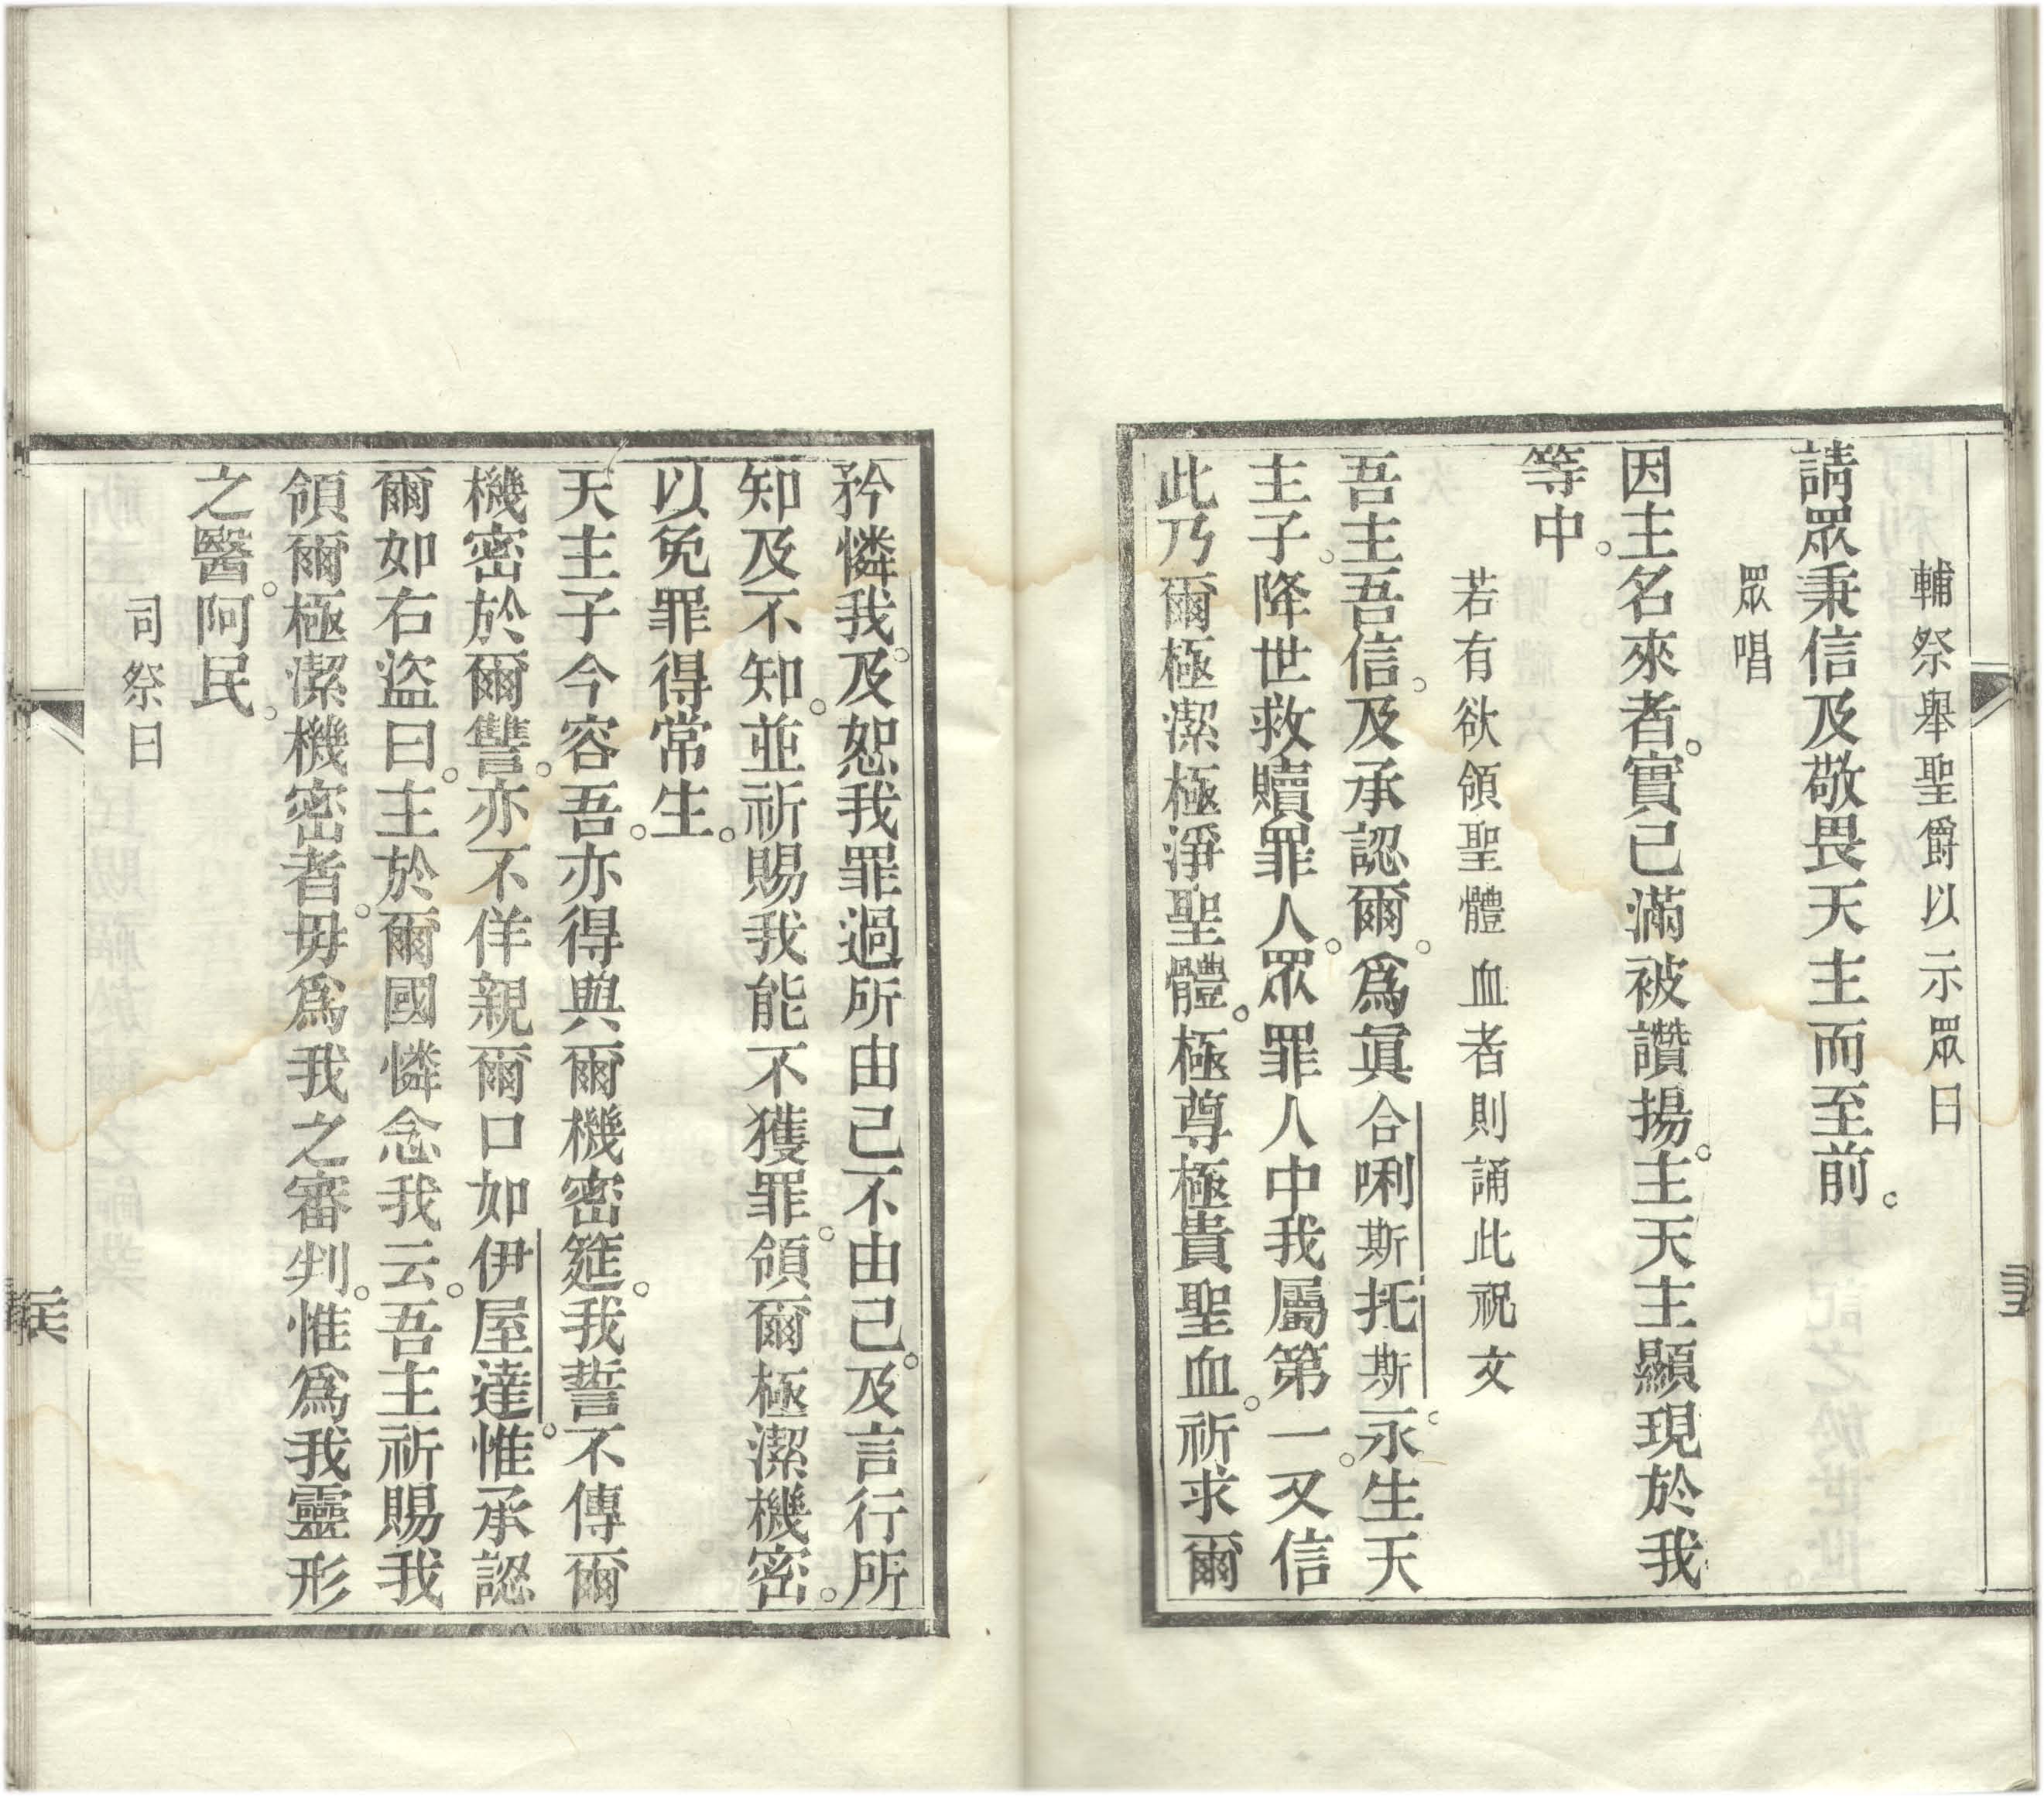 輔祭舉聖爵以示眾曰
請眾秉信及敬畏天主而至前。
眾唱
因主名來者。實已滿被讚揚。主天主顯現於我
等中。
若有欲領聖體血者則誦此祝文
吾主吾信。及承認爾。爲眞合唎斯托斯。永生天
主子。降世救贖罪人。眾罪人中我屬第一。又信
此乃爾極潔極淨聖體。極尊極貴聖血。祈求爾
矜憐我。及恕我罪過所由己不由己。及言行所
知及不知。並祈賜我能不獲罪。領爾極潔機密。
以免罪得常生。
天主子今容吾。亦得與爾機密筵。我誓不傳爾
機密於爾讐。亦不佯親爾口如伊屋達。惟承認
爾如右盜曰。主於爾國憐念我云。吾主祈賜我
領爾極潔機密者。毋爲我之審判。惟爲我靈形
之醫。阿民。
司祭曰